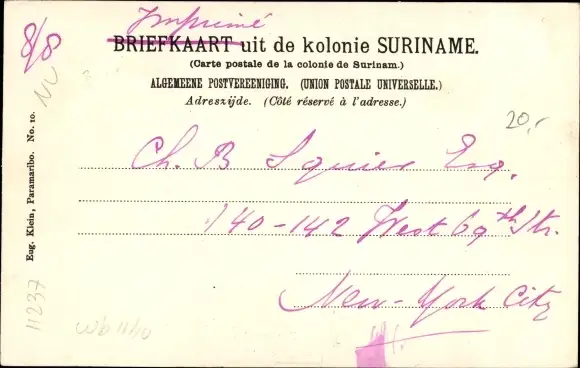 Imprimé
8/8
BRIEFKAART uit de kolonie SURINAME.
(Carte postale de la colonie de Surinam.)
ALGEMEENE POSTVEREENIGING. (UNION POSTALE UNIVERSELLE.)
Adreszijde. (Côté réservé à l'adresse.)
20,-
Ch. B Squier Esq.
140-142 West 69th Str.
New-York City
Eug. Klein, Paramaribo. No. 10.
11237